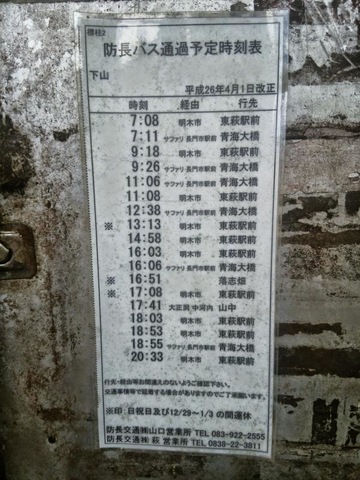 標柱2
防長バス通過予定時刻表
下山
平成26年4月1日改正
時刻 経由 行先
7:08 明木市 東萩駅前
7:11 サファリ 長門市駅前 青海大橋
9:18 明木市 東萩駅前
9:26 サファリ 長門市駅前 青海大橋
11:06 サファリ 長門市駅前 青海大橋
11:08 明木市 東萩駅前
12:38 サファリ 長門市駅前 青海大橋
※ 13:13 明木市 東萩駅前
14:58 明木市 東萩駅前
16:03 明木市 東萩駅前
16:06 サファリ 長門市駅前 青海大橋
※ 16:51 落志畑
※ 17:08 明木市 東萩駅前
17:41 大正洞 中河内 山中
18:03 明木市 東萩駅前
18:53 明木市 東萩駅前
18:55 サファリ 長門市駅前 青海大橋
20:33 明木市 東萩駅前
行先・経由等お間違えのないようご確認下さい。
交通事情等で延着する場合がありますのでご了承願います。
※印:日祝日及び12/29～1/3の間運休
防長交通㈱山口営業所 TEL 083-922-2555
防長交通㈱ 萩 営業所 TEL 0838-22-3811